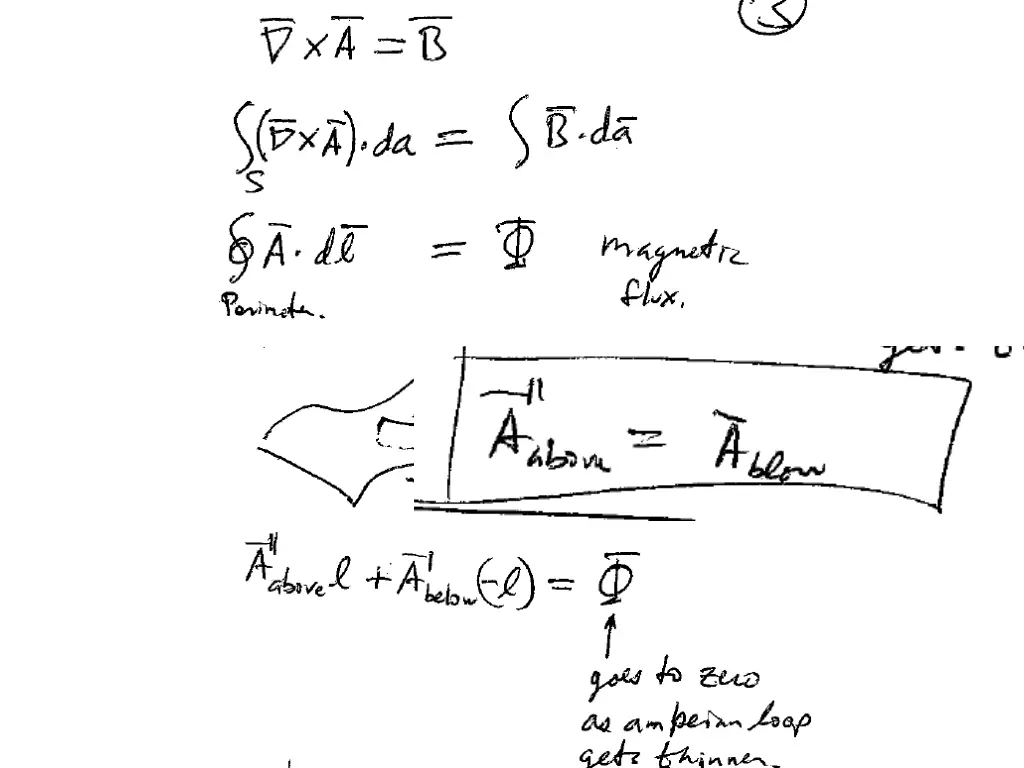 3
∇̅ × A̅ = B̅
∫_S (∇̅ × A̅) · da = ∫ B̅ · da̅
∮ A̅ · dl̅ = Φ magnetic
Perimeter. flux.
A̅^∥_above = A̅_below
A̅^∥_above l + A̅^∥_below (-l) = Φ
↑
goes to zero
as amperian loop
gets thinner.